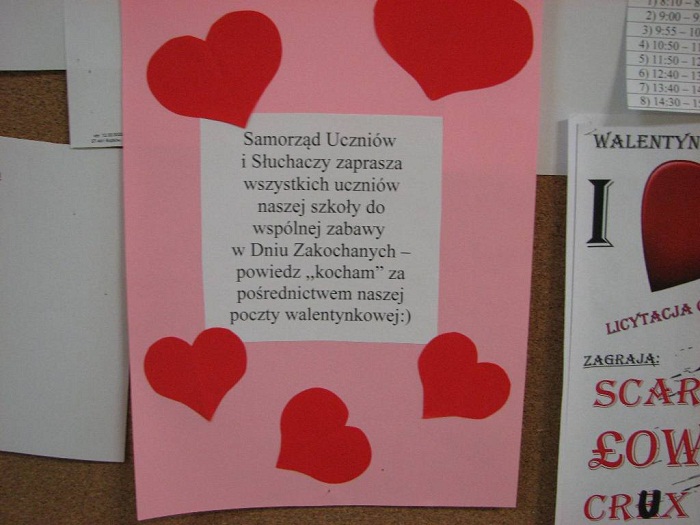 Samorząd Uczniów
i Słuchaczy zaprasza
wszystkich uczniów
naszej szkoły do
wspólnej zabawy
w Dniu Zakochanych –
powiedz ,,kocham” za
pośrednictwem naszej
poczty walentynkowej:)
1) 8:10 –
2) 9:00 –
3) 9:55 – 10
4) 10:50 –
5) 11:50 – 12
6) 12:40 –
7) 13:40 – 14
8) 14:30 –
WALENTYN
I
LICYTACJA
ZAGRAJĄ:
SCAR
ŁOW
CRUX